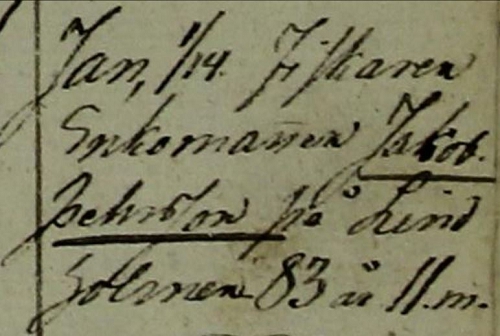 Jan, 1/14. Fiskaren
Enkoman̄en Jakob.
Pehrsson på Lind
holmen 83 år 11.m.